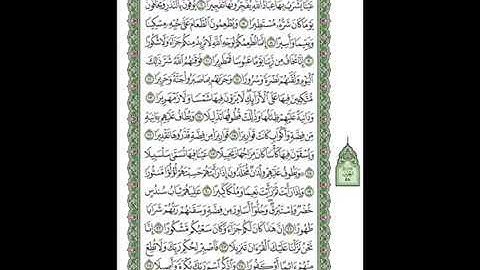 عَيْنًا يَشْرَبُ بِهَا عِبَادُ ٱللَّهِ يُفَجِّرُونَهَا تَفْجِيرًا ٦ يُوفُونَ بِٱلنَّذْرِ وَيَخَافُونَ
يَوْمًا كَانَ شَرُّهُۥ مُسْتَطِيرًا ٧ وَيُطْعِمُونَ ٱلطَّعَامَ عَلَىٰ حُبِّهِۦ مِسْكِينًا
وَيَتِيمًا وَأَسِيرًا ٨ إِنَّمَا نُطْعِمُكُمْ لِوَجْهِ ٱللَّهِ لَا نُرِيدُ مِنكُمْ جَزَآءً وَلَا شُكُورًا
٩ إِنَّا نَخَافُ مِن رَّبِّنَا يَوْمًا عَبُوسًا قَمْطَرِيرًا ١٠ فَوَقَىٰهُمُ ٱللَّهُ شَرَّ ذَٰلِكَ
ٱلْيَوْمِ وَلَقَّىٰهُمْ نَضْرَةً وَسُرُورًا ١١ وَجَزَىٰهُم بِمَا صَبَرُوا۟ جَنَّةً وَحَرِيرًا ١٢
مُّتَّكِـِٔينَ فِيهَا عَلَى ٱلْأَرَآئِكِ لَا يَرَوْنَ فِيهَا شَمْسًا وَلَا زَمْهَرِيرًا ١٣
وَدَانِيَةً عَلَيْهِمْ ظِلَٰلُهَا وَذُلِّلَتْ قُطُوفُهَا تَذْلِيلًا ١٤ وَيُطَافُ عَلَيْهِم بِـَٔانِيَةٍ
مِّن فِضَّةٍ وَأَكْوَابٍ كَانَتْ قَوَارِيرَا۠ ١٥ قَوَارِيرَا۟ مِن فِضَّةٍ قَدَّرُوهَا تَقْدِيرًا ١٦
وَيُسْقَوْنَ فِيهَا كَأْسًا كَانَ مِزَاجُهَا زَنجَبِيلًا ١٧ عَيْنًا فِيهَا تُسَمَّىٰ سَلْسَبِيلًا
١٨ وَيَطُوفُ عَلَيْهِمْ وِلْدَٰنٌ مُّخَلَّدُونَ إِذَا رَأَيْتَهُمْ حَسِبْتَهُمْ لُؤْلُؤًا مَّنثُورًا
١٩ وَإِذَا رَأَيْتَ ثَمَّ رَأَيْتَ نَعِيمًا وَمُلْكًا كَبِيرًا ٢٠ عَٰلِيَهُمْ ثِيَابُ سُندُسٍ
خُضْرٌ وَإِسْتَبْرَقٌ وَحُلُّوٓا۟ أَسَاوِرَ مِن فِضَّةٍ وَسَقَىٰهُمْ رَبُّهُمْ شَرَابًا
طَهُورًا ٢١ إِنَّ هَٰذَا كَانَ لَكُمْ جَزَآءً وَكَانَ سَعْيُكُم مَّشْكُورًا ٢٢ إِنَّا
نَحْنُ نَزَّلْنَا عَلَيْكَ ٱلْقُرْءَانَ تَنزِيلًا ٢٣ فَٱصْبِرْ لِحُكْمِ رَبِّكَ وَلَا تُطِعْ
مِنْهُمْ ءَاثِمًا أَوْ كَفُورًا ٢٤ وَٱذْكُرِ ٱسْمَ رَبِّكَ بُكْرَةً وَأَصِيلًا ٢٥